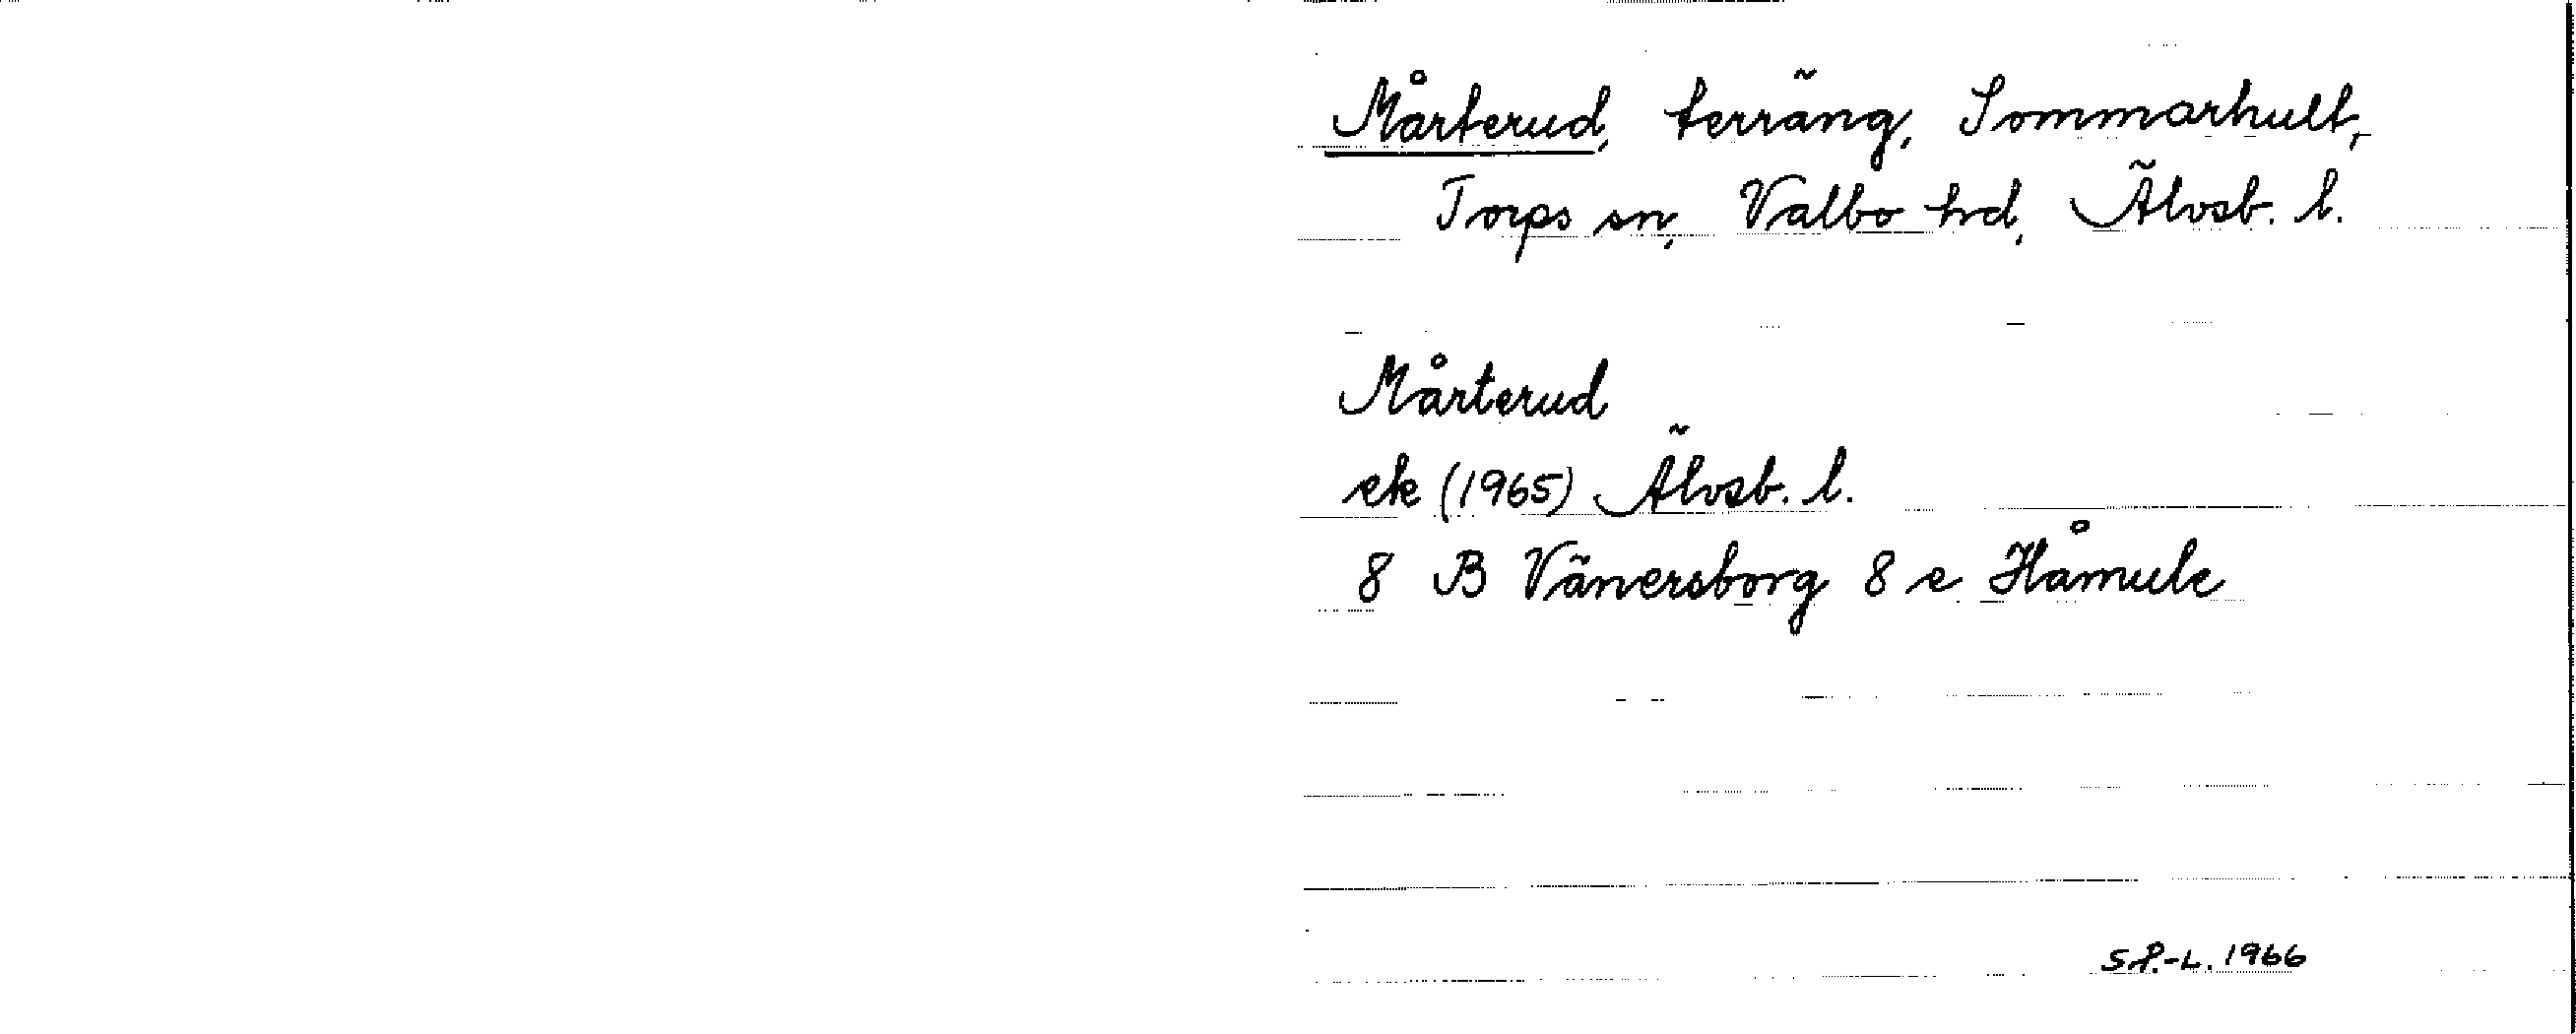 Mårterud, terräng, Sommarhult,
Torps sn, Valbo hd, Älvsb. l.
Mårterud
ek (1965) Älvsb. l.
8 B Vänersborg 8 e Håmule
S.P.-L. 1966